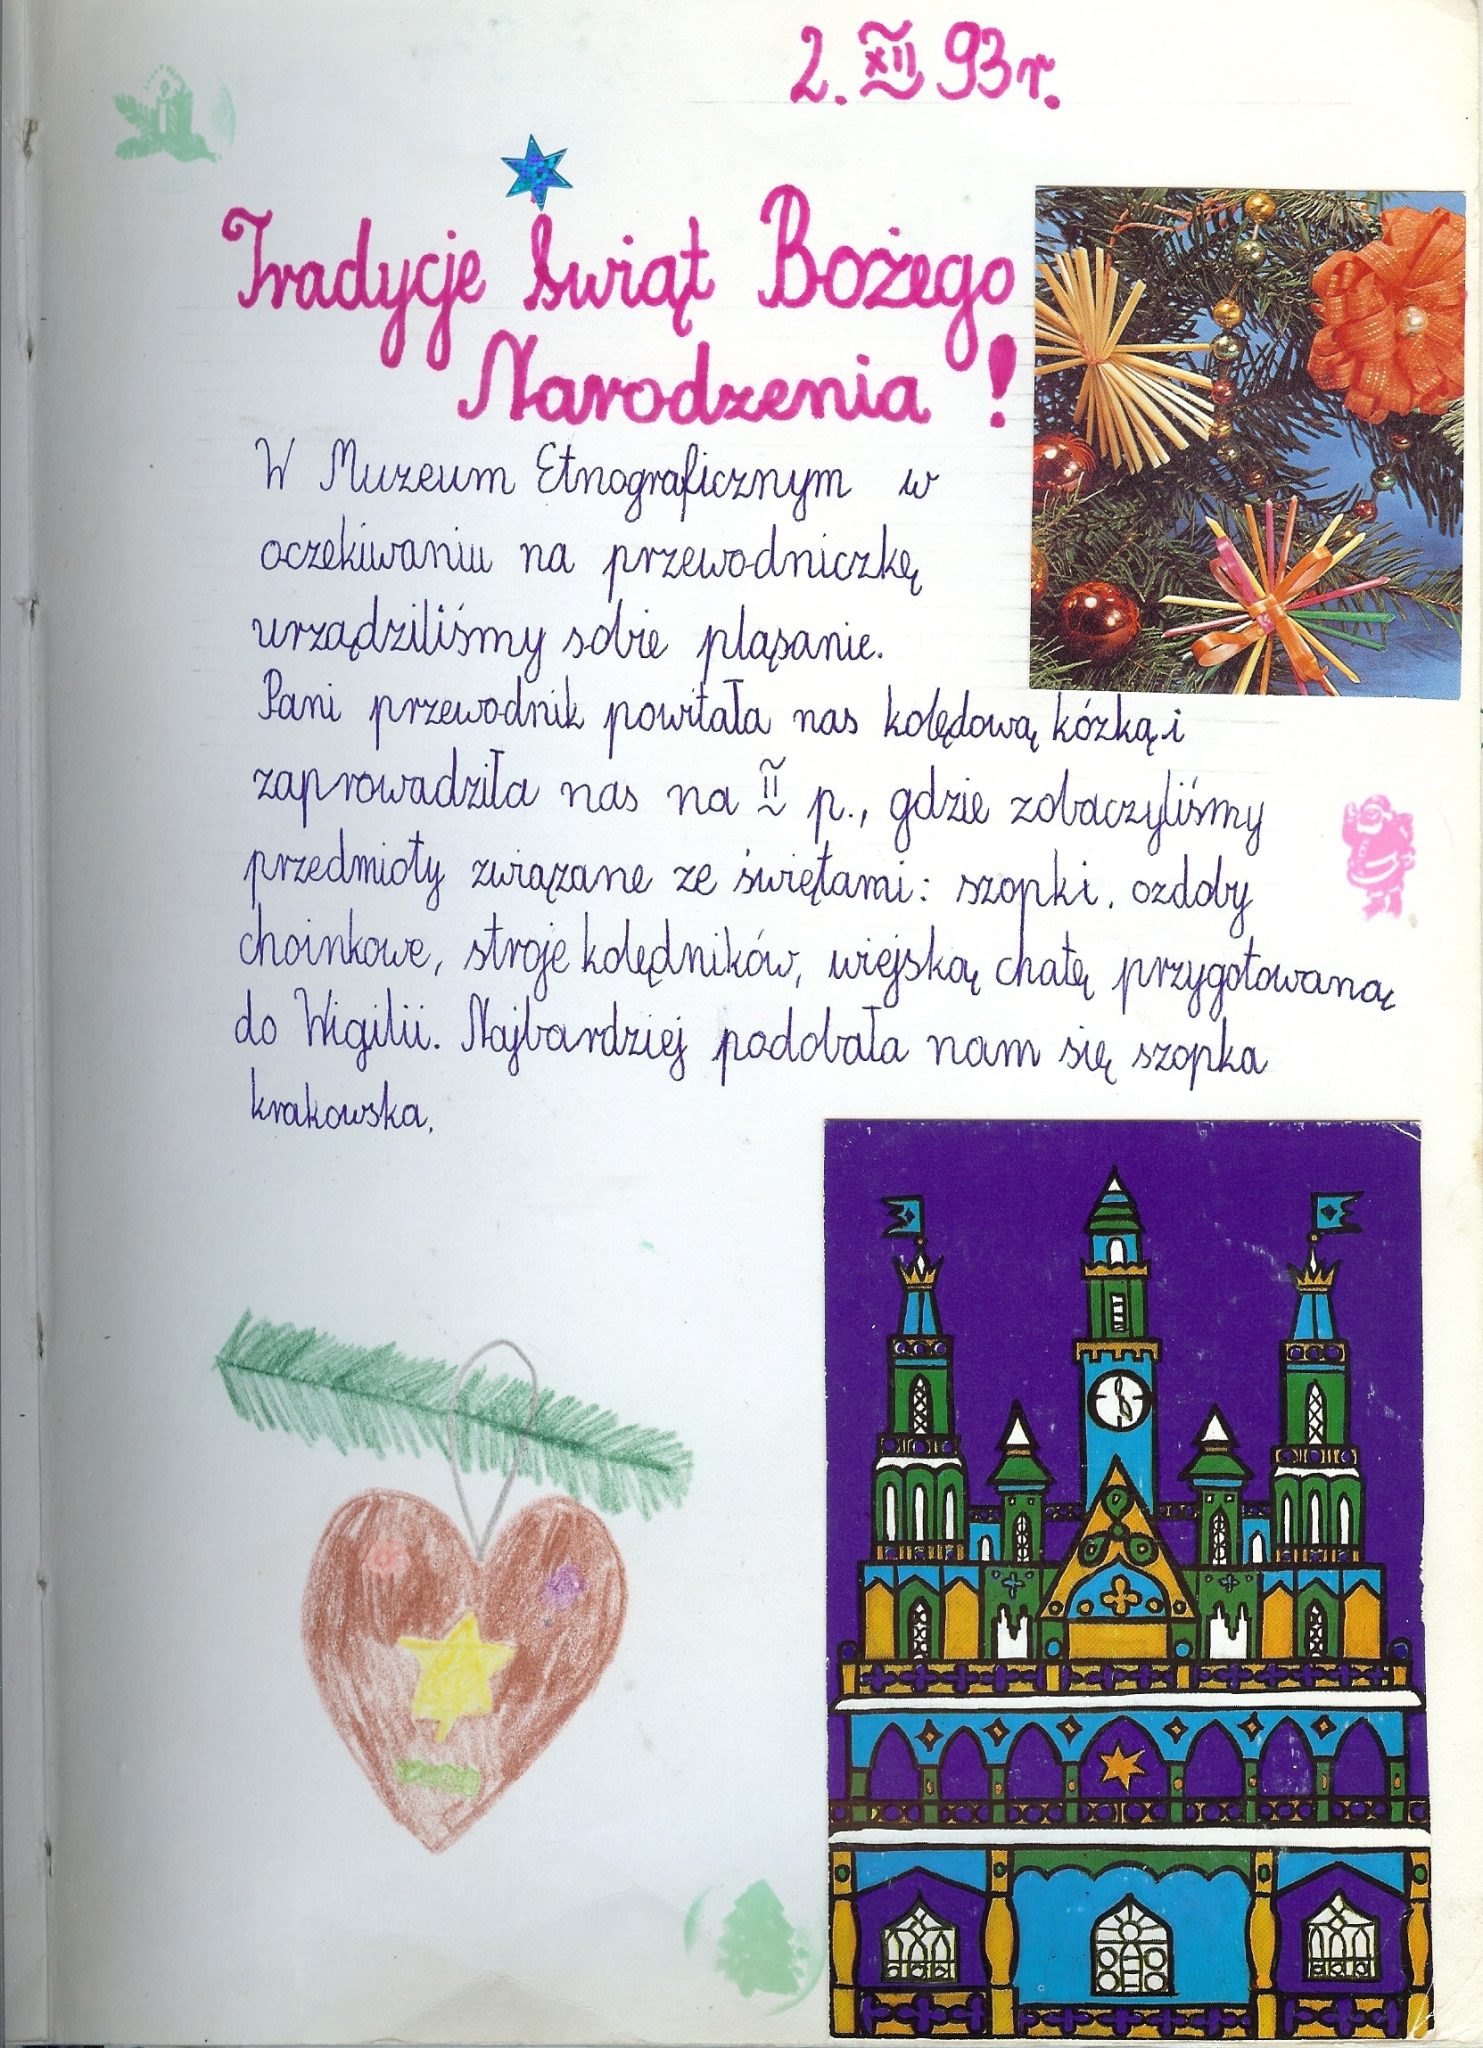 2. XII 93 r.
Tradycje Świąt Bożego
Narodzenia!
W Muzeum Etnograficznym w
oczekiwaniu na przewodniczkę
urządziliśmy sobie pląsanie.
Pani przewodnik powitała nas kolędową kózką i
zaprowadziła nas na II p., gdzie zobaczyliśmy
przedmioty związane ze świętami: szopki, ozdoby
choinkowe, stroje kolędników, wiejską chatę przygotowaną
do Wigilii. Najbardziej podobała nam się szopka
krakowska.